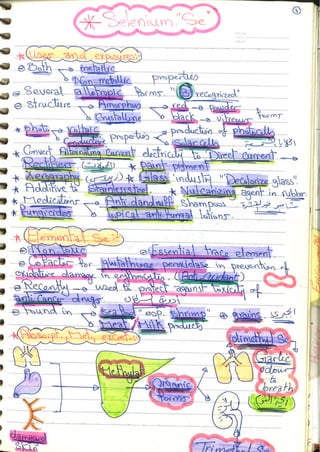 * Selenium "Se"
* Uses and exposures:
Both → metallic
→ Non-metallic properties
Several allotropic forms "3 recognized"
Structure → Amorphus → red → powder
→ Crystalline → black → vitreous forms
photo → voltaic
→ Conductor properties → production of photocells
→ solar cells
Convert Alternating Current electricity to Direct Current →
Rectifiers * paint pigment
* Xerography * Glass industry "Decolorize glass"
* Additive to Stainless steel * Vulcanizing agent in rubber
* Medications → Anti dandruff shampoos
* Fungicides → topical anti-fungal lotions.
* Elemental Se:
Non Toxic Essential trace element
Cofactor for glutathione peroxidase in prevention of
oxidative damage in erythrocytes (Anti oxidant)
Recently → used to protect against toxicity of
anti cancer drugs
found in → Sea food esp. shrimp grains
→ Meat / Milk products
* Absorpt., Met., excretion:
dimethyl Se
Garlic
odour
to
breath
Methylat
Organic
forms
damaged
skin
Trimethyl Se